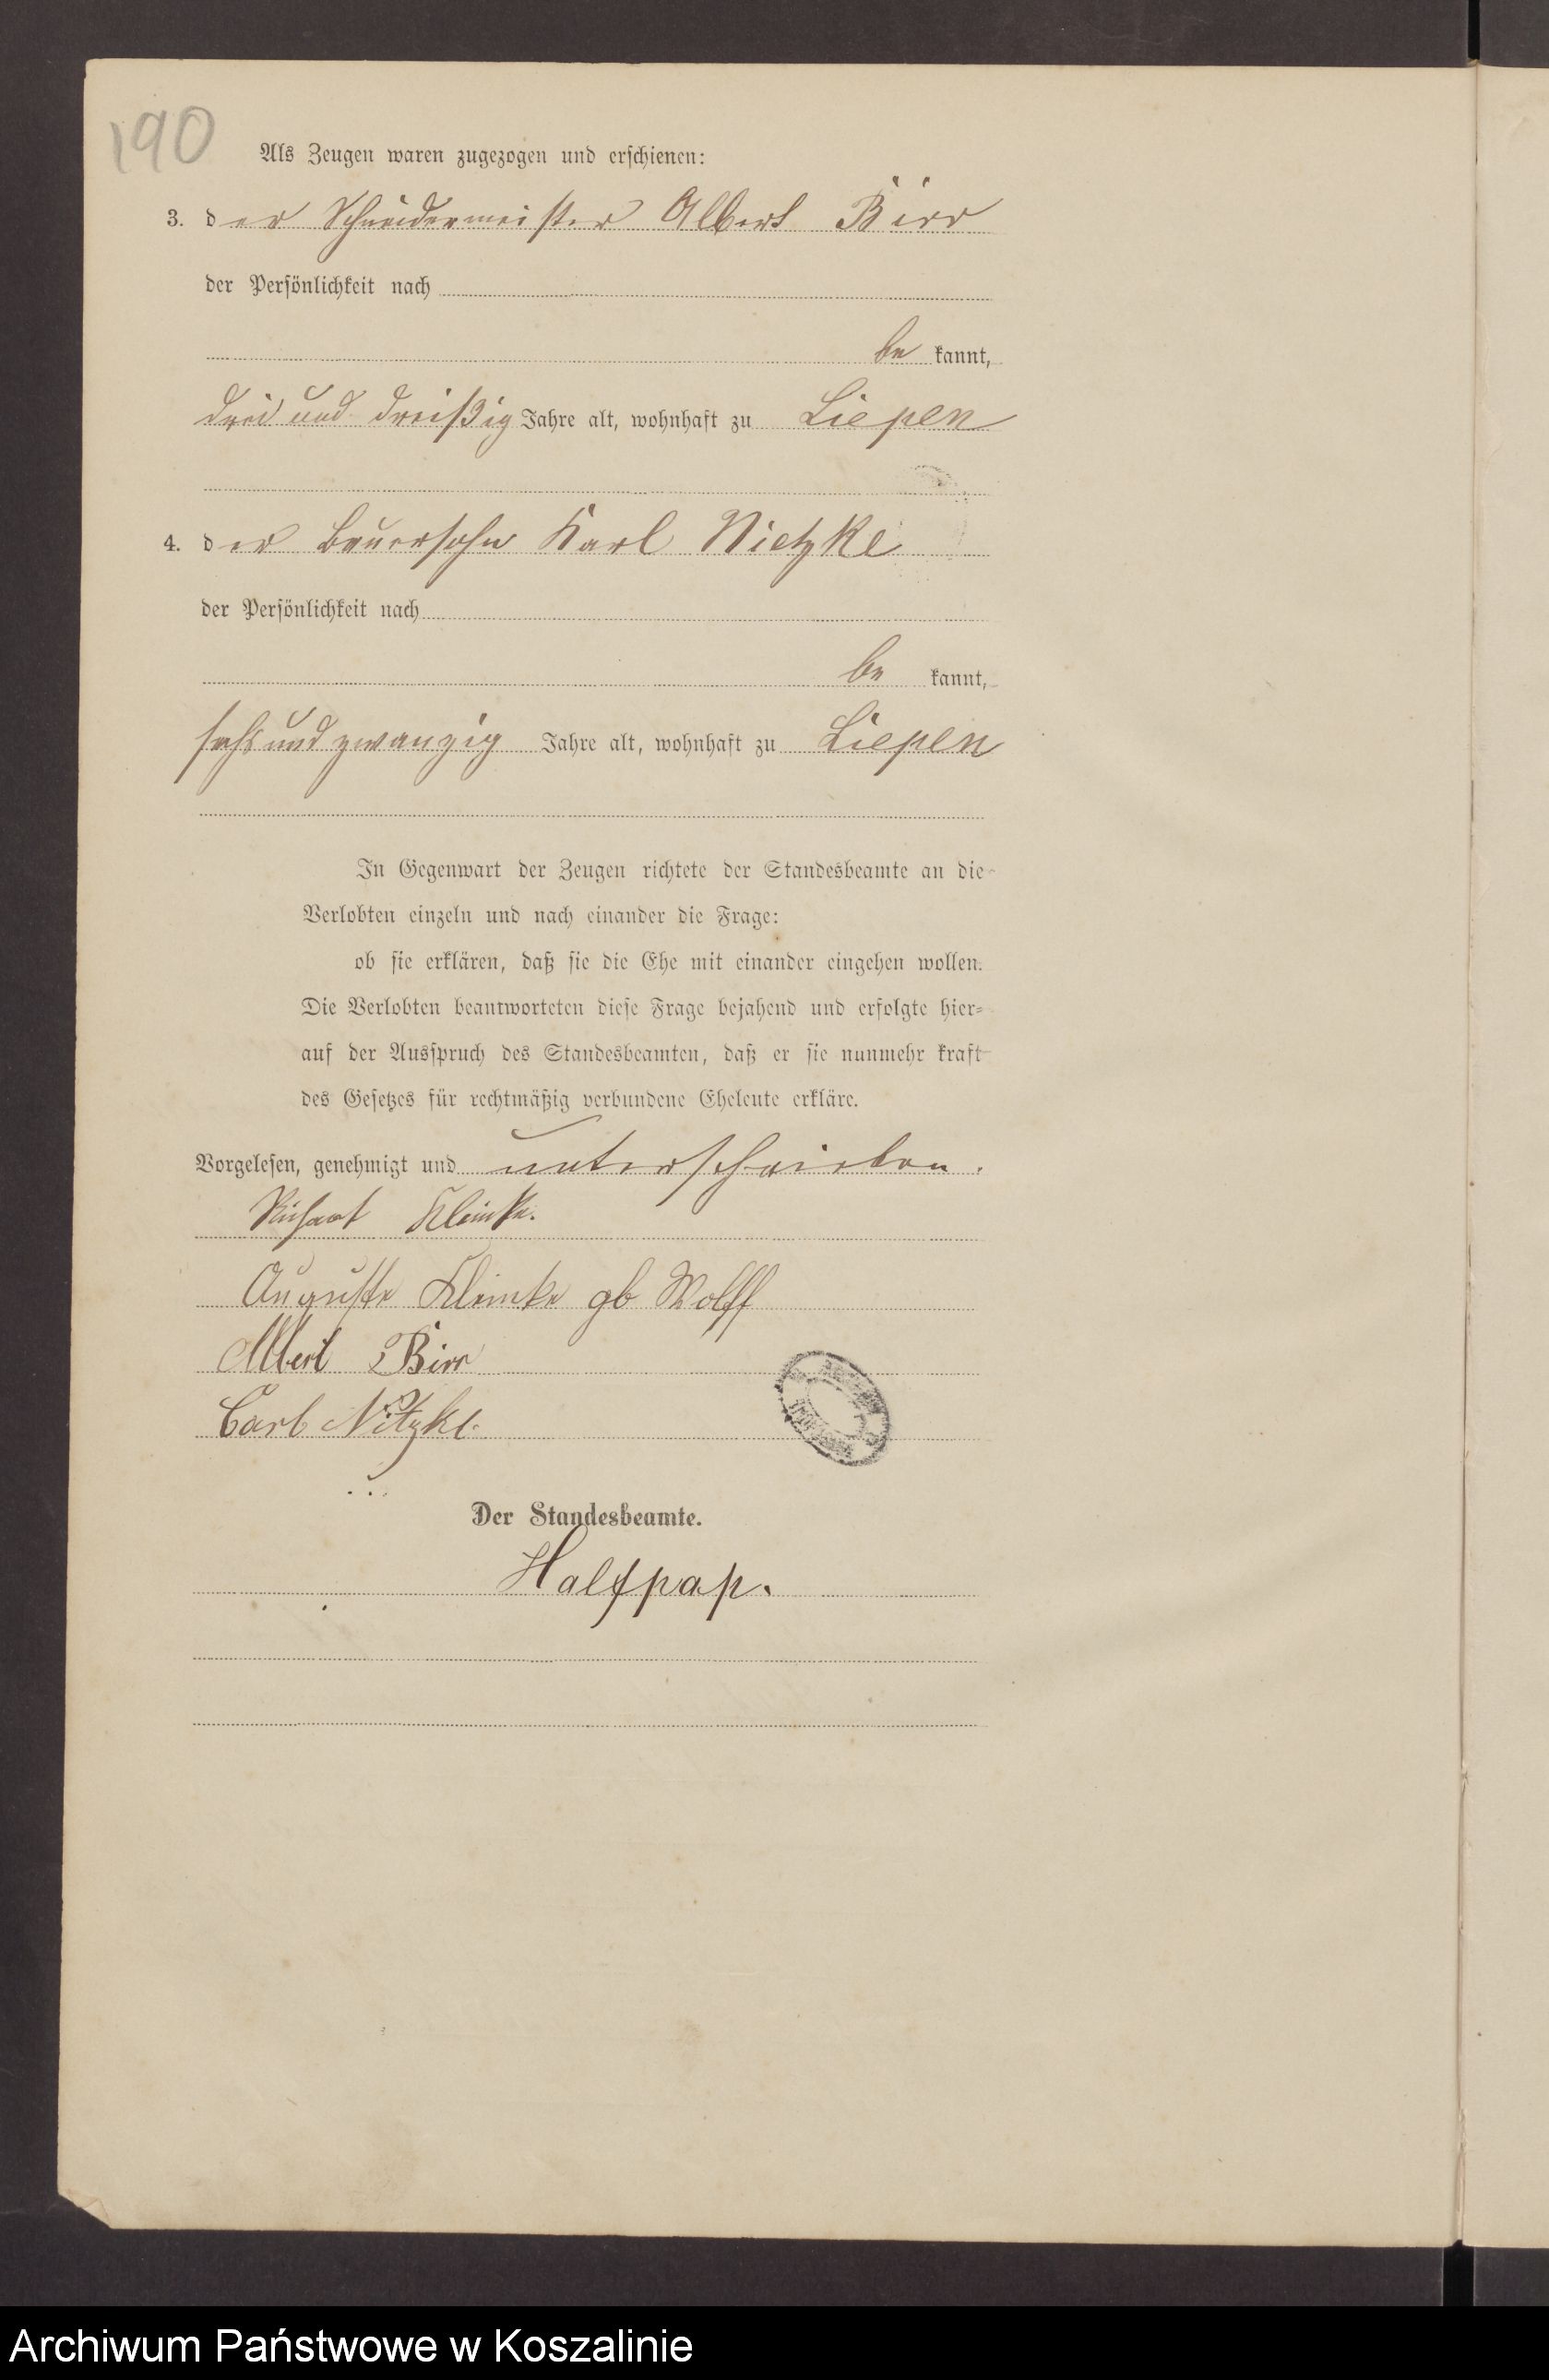 190
Als Zeugen waren zugezogen und erschienen:
3. der Schneidermeister Albert Birr
der Persönlichkeit nach
be kannt,
drei und dreißig Jahre alt, wohnhaft zu Liepen
4. der Bauersohn Karl Nietzke
der Persönlichkeit nach
be kannt,
sechs und zwanzig Jahre alt, wohnhaft zu Liepen
In Gegenwart der Zeugen richtete der Standesbeamte an die
Verlobten einzeln und nach einander die Frage:
ob sie erklären, daß sie die Ehe mit einander eingehen wollen.
Die Verlobten beantworteten diese Frage bejahend und erfolgte hier-
auf der Ausspruch des Standesbeamten, daß er sie nunmehr kraft
des Gesetzes für rechtmäßig verbundene Eheleute erkläre.
Vorgelesen, genehmigt und unterschrieben.
Klemke.
Auguste Klemke gb Wolff
Albert Birr
Carl Nitzke.
Der Standesbeamte.
Halfpap.
Archiwum Państwowe w Koszalinie